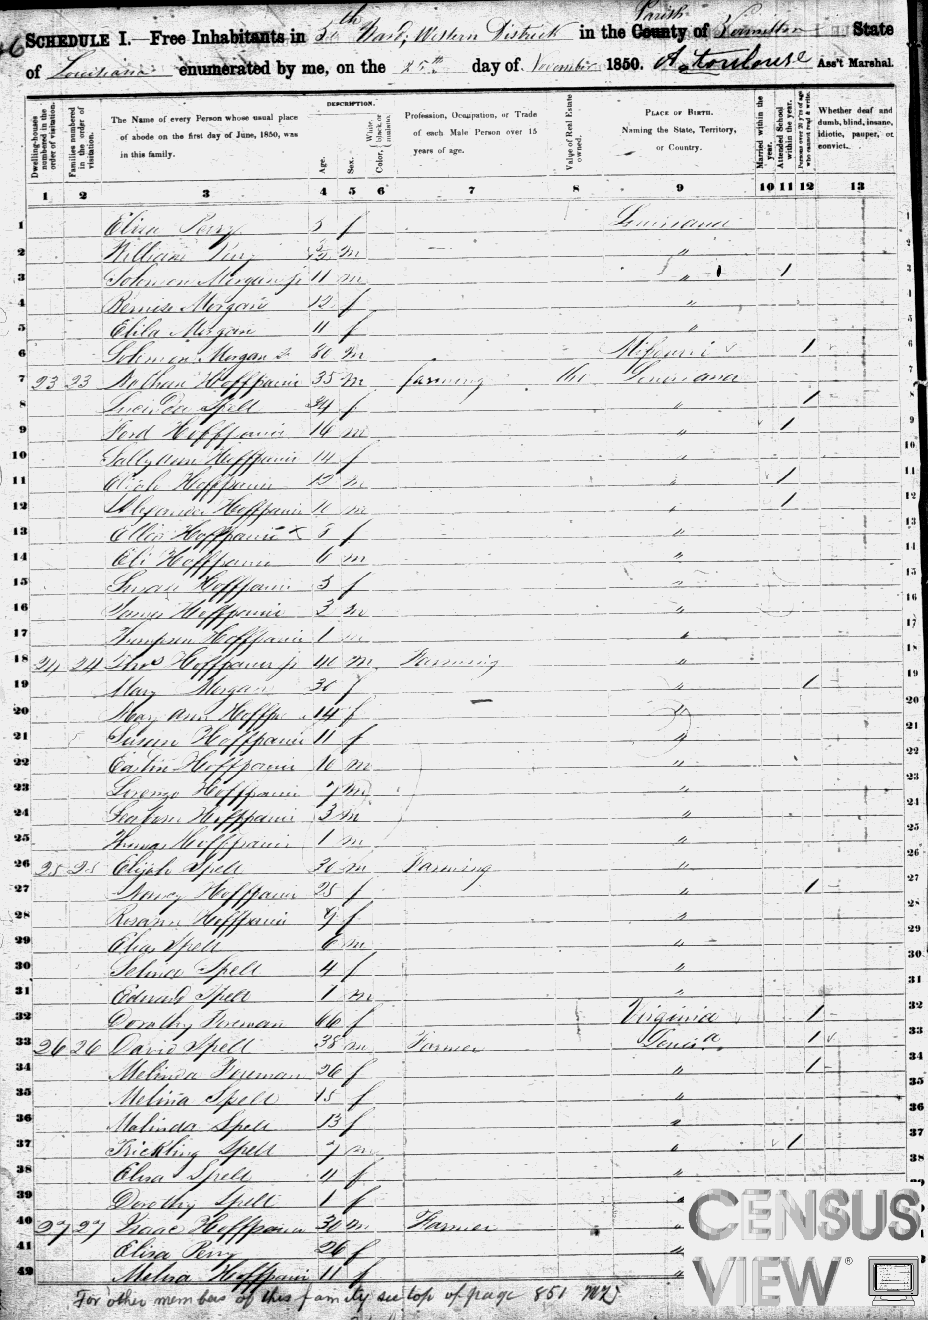 SCHEDULE I.—Free Inhabitants in 5th Ward, Western District in the County of Parish Vermillion State
of Louisiana enumerated by me, on the 25th day of November 1850. Ass't Marshal.
DESCRIPTION.
Dwelling-houses numbered in the order of visitation.
Families numbered in the order of visitation.
The Name of every Person whose usual place of abode on the first day of June, 1850, was in this family.
Age.
Sex.
Color, White, black, or mulatto.
Profession, Occupation, or Trade of each Male Person over 15 years of age.
Value of Real Estate owned.
PLACE OF BIRTH. Naming the State, Territory, or Country.
Married within the year.
Attended School within the year.
Persons over 20 y'rs of age who cannot read & write.
Whether deaf and dumb, blind, insane, idiotic, pauper, or convict.
1 2 3 4 5 6 7 8 9 10 11 12 13
1 Eliza Perry 5 f Louisiana
2 William Perry m "
3 Solomon Morgan jr 11 m " 1
4 Morgan 12 f "
5 Morgan 11 f "
6 Solomon Morgan 30 m Missouri 1
7 23 23 Nathan Hoffpauir 35 m farming Louisiana
8 Lucinda Spell 34 f " 1
9 Hoffpauir 16 m " 1
10 Sallyann Hoffpauir 14 f "
11 Hoffpauir 12 m " 1
12 Alexander Hoffpauir 10 m " 1
13 Ellen Hoffpauir x 8 f "
14 Eli Hoffpauir 6 m "
15 Susan Hoffpauir 5 f "
16 James Hoffpauir 3 m "
17 Thompson Hoffpauir 1 m "
18 24 24 Thos Hoffpauir jr 40 m Farming "
19 Mary Morgan 30 f " 1
20 Mary Ann Hoffp 14 f "
21 Susan Hoffpauir 11 f "
22 Hoffpauir 10 m "
23 Lorenzo Hoffpauir 7 m "
24 Hoffpauir 3 m "
25 Thomas Hoffpauir 1 m "
26 25 25 Elijah Spell 30 m Farming "
27 Nancy Hoffpauir 25 f " 1
28 Rosann Hoffpauir 9 f "
29 Elias Spell 6 m "
30 Selina Spell 4 f "
31 Edward Spell 1 m "
32 Dorothy Foreman 66 f Virginia 1
33 26 26 David Spell 38 m Farmer Louis.a 1
34 Melinda Foreman 26 f " 1
35 Melina Spell 15 f "
36 Malinda Spell 13 f "
37 Spell 7 m " 1
38 Eliza Spell 4 f "
39 Dorothy Spell 1 f "
40 27 27 Isaac Hoffpauir 30 m Farmer "
41 Eliza Perry 26 f "
42 Melisa Hoffpauir 11 f "
For other members of this family see top of page 851
CENSUS
VIEW®